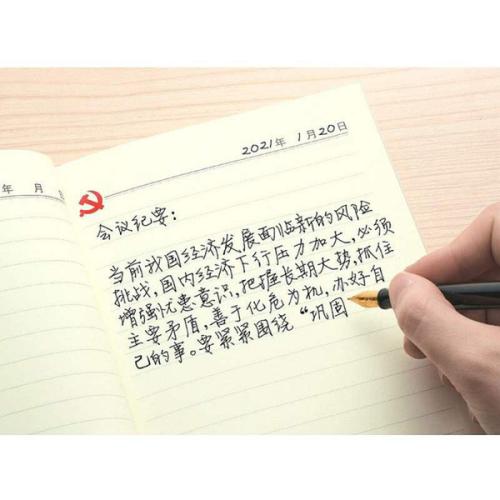 2021年 1月20日
年 月 日
会议纪要:
当前我国经济发展面临新的风险
挑战,国内经济下行压力加大,必须
增强忧患意识,把握长期大势,抓住
主要矛盾,善于化危为机,办好自
己的事。要紧紧围绕“巩固